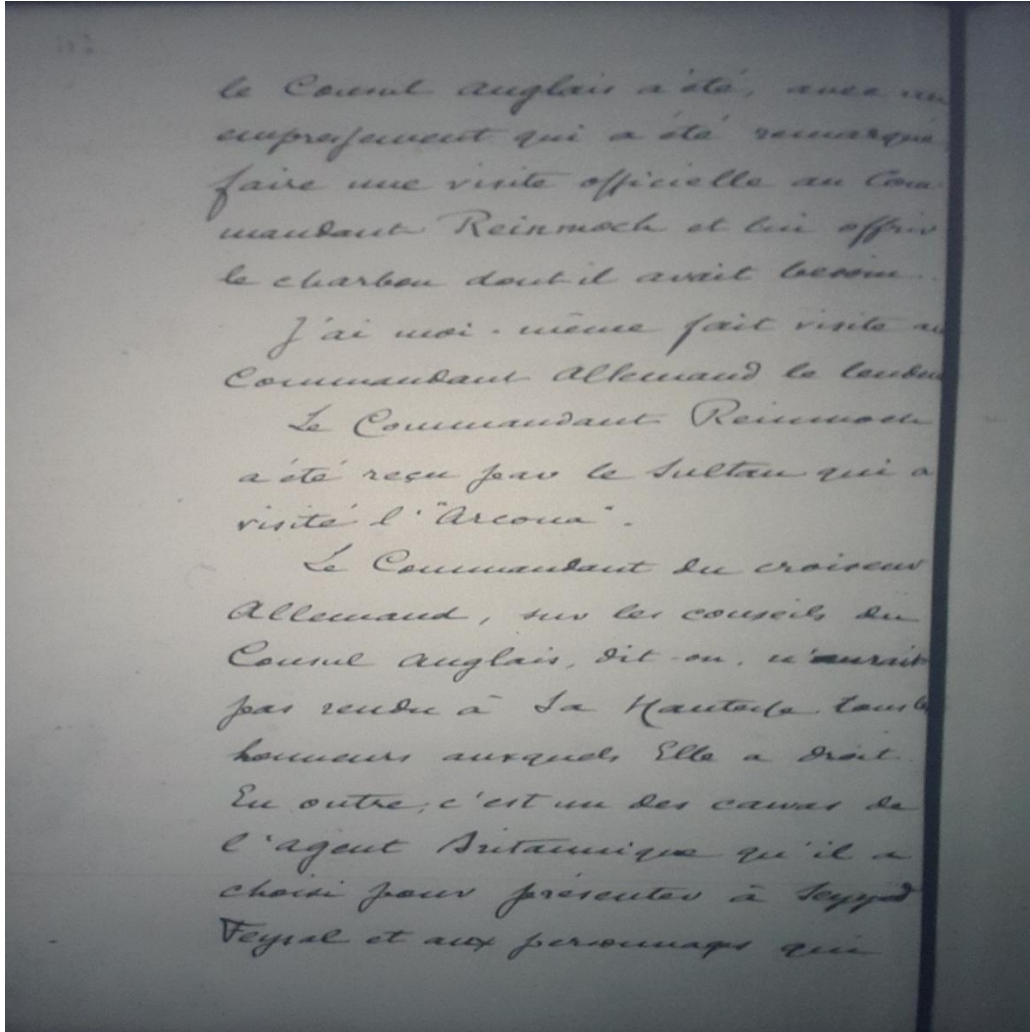 le Consul anglais a été, avec un
empressement qui a été remarqué
faire une visite officielle au Com-
mandant Reinmoch et lui offrir
le charbon dont il avait besoin.
J'ai moi-même fait visite au
Commandant Allemand le lendem
Le Commandant Reinmoch
a été reçu par le Sultan qui a
visité l'"Arcona".
Le Commandant du croiseur
Allemand, sur les conseils du
Consul anglais, dit-on, n'aurait
pas rendu à Sa Hautesse tous les
honneurs auxquels Elle a droit.
En outre, c'est un des cawas de
l'agent Britannique qu'il a
choisi pour présenter à Seyyed
Feysal et aux personnages qui